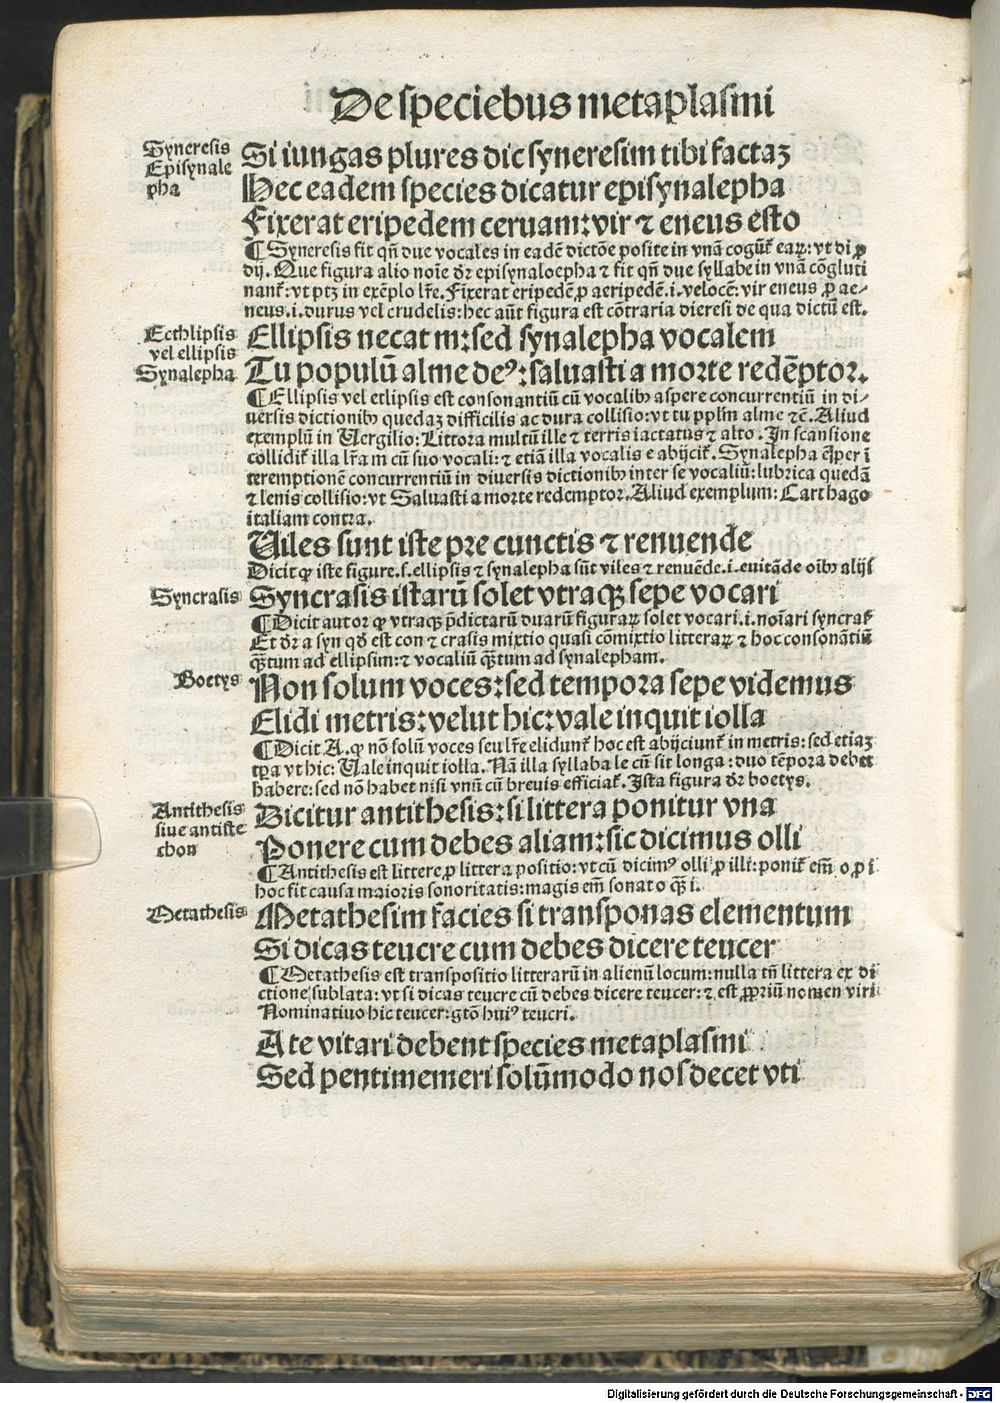 De speciebus metaplasmi
Syneresis
Episynale
pha
Si iungas plures dic syneresim tibi factaꝫ
Hec eadem species dicatur episynalepha
Fixerat eripedem ceruam: vir ⁊ eneus esto
¶ Syneresis fit qñ due vocales in eadē dictōe posite in vnā cogūt᷑ eaꝝ: vt di ꝓ
dij. Que figura alio noīe dr̄ episynaloepha ⁊ fit qñ due syllabe in vnā cōgluti
nant᷑: vt ptꝫ in exēplo lr̄e. Fixerat eripedē ꝓ aeripedē .i. velocē: vir eneus ꝓ ae-
neus .i. durus vel crudelis: hec aūt figura est cōtraria dieresi de qua dictū est.
Ecthlipsis
vel ellipsis
Synalepha
Ellipsis necat m: sed synalepha vocalem
Tu populū alme deꝰ: saluasti a morte redēptor.
¶ Ellipsis vel etlipsis est consonantiū cū vocalibꝰ aspere concurrentiū in di-
uersis dictionibꝰ quedaꝫ difficilis ac dura collisio: vt tu pplm̄ alme ⁊c̄. Aliud
exemplū in Vergilio: Littora multū ille ⁊ terris iactatus ⁊ alto. In scansione
collidit᷑ illa lr̄a m cū suo vocali: ⁊ etiā illa vocalis e abijcit᷑. Synalepha ē ꝑ ī
teremptionē concurrentiū in diuersis dictionibꝰ inter se vocaliū: lubrica quedā
⁊ lenis collisio: vt Saluasti a morte redemptor. Aliud exemplum: Carthago
italiam contra.
Uiles sunt iste pre cunctis ⁊ renuende
Dicit ꝙ iste figure .s. ellipsis ⁊ synalepha sūt viles ⁊ renuēde .i. euitāde oībꝰ alijs
Syncrasis
Syncrasis istarū solet vtraqꝫ sepe vocari
¶ Dicit autor ꝙ vtraqꝫ p̄dictarū duarū figuraꝝ solet vocari .i. noīari syncrasis
Et dr̄ a syn qd̄ est con ⁊ crasis mixtio quasi cōmixtio litteraꝝ ⁊ hoc consonātiū
q̄ꝫtum ad ellipsim: ⁊ vocaliū q̄ꝫtum ad synalepham.
Boetys
Non solum voces: sed tempora sepe videmus
Elidi metris: velut hic: vale inquit iolla
¶ Dicit A. ꝙ nō solū voces seu lr̄e elidunt᷑ hoc est abijciunt᷑ in metris: sed etiaꝫ
tp̄a vt hic: Uale inquit iolla. Nā illa syllaba le cū sit longa: duo tēpora debet
habere: sed nō habet nisi vnū cū breuis efficiat᷑. Ista figura dr̄ boetys.
Antithesis
siue antiste
chon
Dicitur antithesis: si littera ponitur vna
Ponere cum debes aliam: sic dicimus olli
¶ Antithesis est littere ꝓ littera positio: vt cū dicimꝰ olli ꝓ illi: ponit᷑ em̄ o ꝓ i.
hoc fit causa maioris sonoritatis: magis em̄ sonat o q̄ꝫ i.
Metathesis
Metathesim facies si transponas elementum
Si dicas teucre cum debes dicere teucer
¶ Metathesis est transpositio litterarū in alienū locum: nulla tn̄ littera ex di
ctione sublata: vt si dicas teucre cū debes dicere teucer: ⁊ est ꝓpriū nomen viri
Nominatiuo hic teucer: gtō huiꝰ teucri.
A te vitari debent species metaplasmi
Sed pentimemeri solūmodo nos decet vti
Digitalisierung gefördert durch die Deutsche Forschungsgemeinschaft - DFG